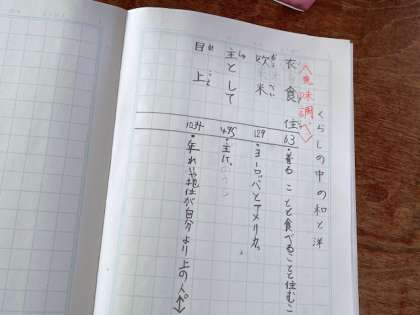 くらしの中の和と洋
〈意味調べ〉
衣食住 63 ・着ることと食べること住むこ
欧米 129 ・ヨーロッパとアメリカ。
主として 495 ・主に。
目上 1034 ・年れいや地位が自分より上の人。